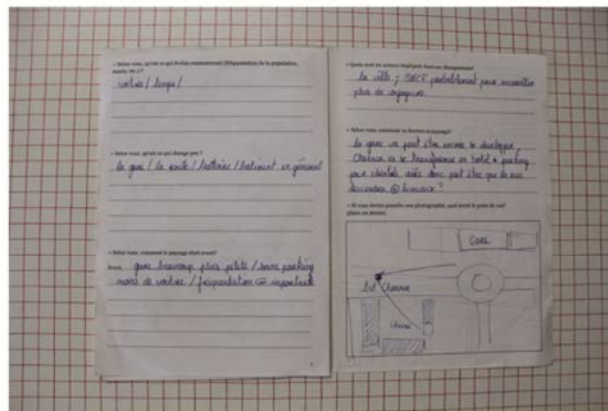 > Selon vous, qu'est-ce qui évolue constamment (fréquentation de la population,
voiture / temps /
> Selon vous, qu'est-ce qui change peu ?
la gare / la route / trottoirs / batiment en général
> Selon vous, comment le paysage était avant?
Avant, gare beaucoup plus petite / sans parking
moins de voiture / fréquentation importante
> Quels sont les acteurs impliqués dans ces changements?
la ville ; SNCF probablement pour accueillir
plus de voyageurs
> Selon vous, comment va devenir ce paysage?
la gare va peut être encore se développer,
va se transformer en hotel + parking
pour clientèle donc peut être que la rue
deviendra ?
> Si vous deviez prendre une photographie, quel serait le point de vue?
(faire un dessin)
GARE